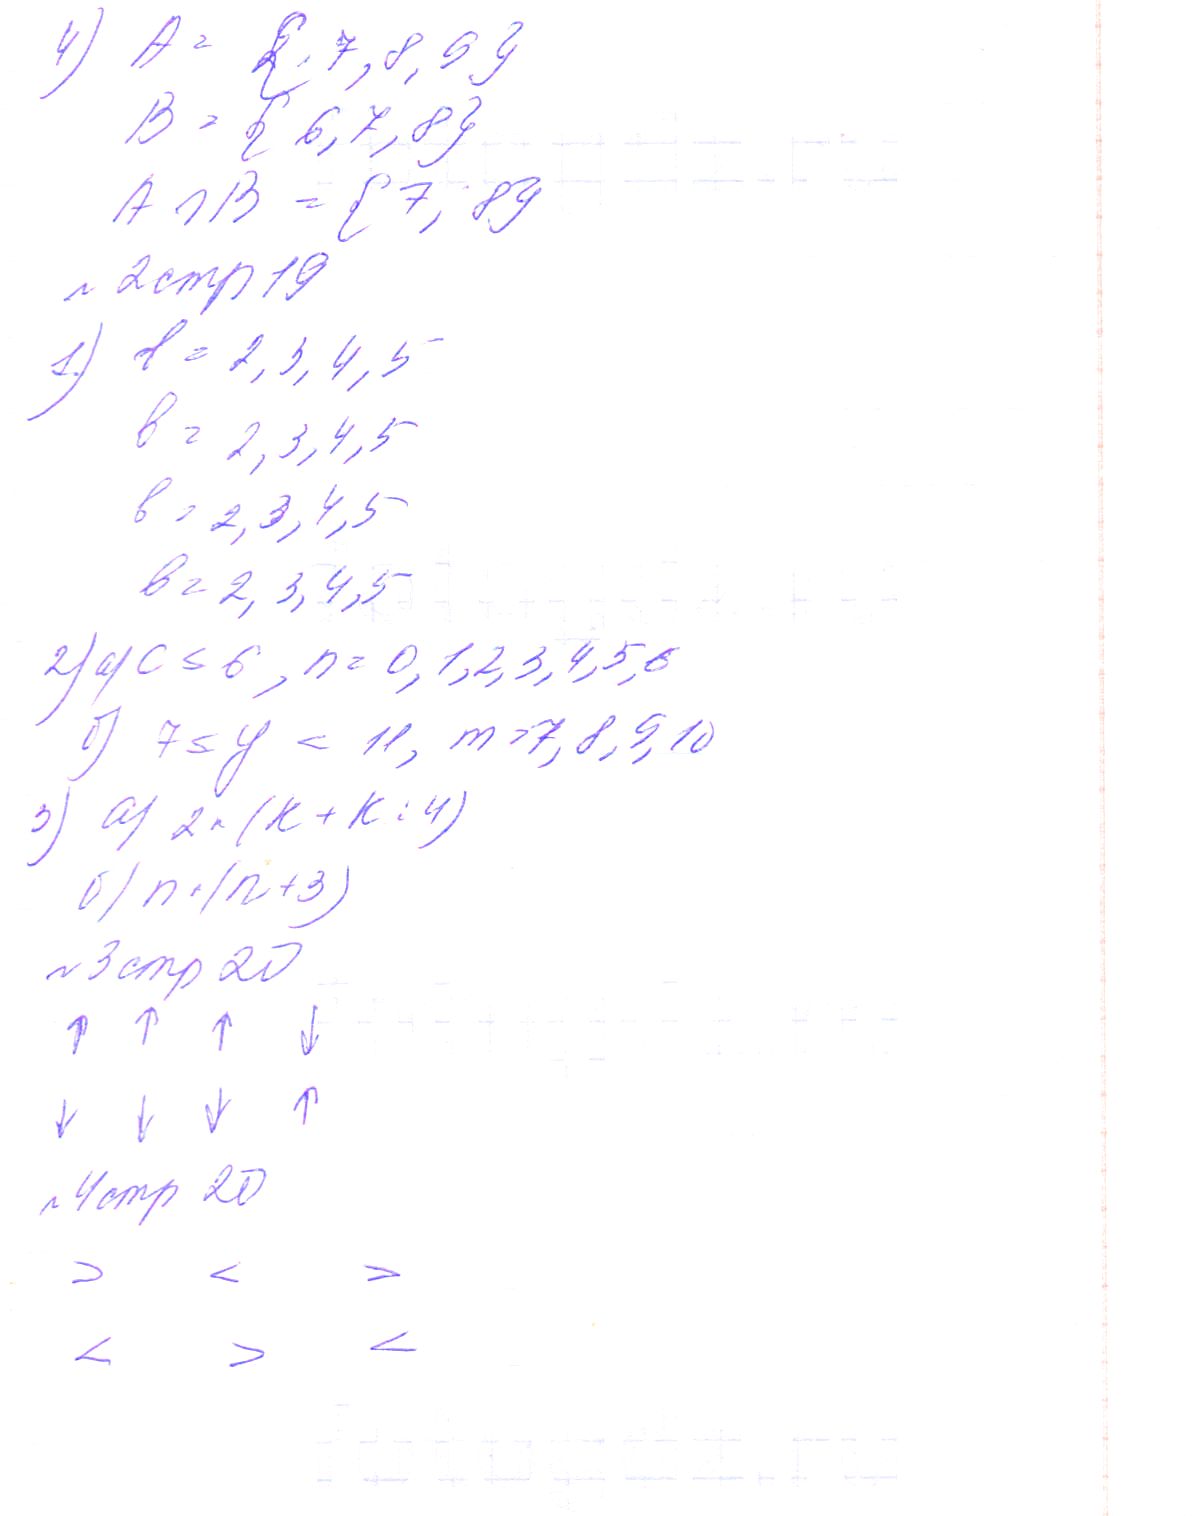 4) A = {7, 8, 9}
B = {6, 7, 8}
A ∩ B = {7, 8}
~ 2 стр 19
1) в = 2, 3, 4, 5
в = 2, 3, 4, 5
в = 2, 3, 4, 5
в = 2, 3, 4, 5
2) а) C ≤ 6, n = 0, 1, 2, 3, 4, 5, 6
б) 7 ≤ y < 11, m = 7, 8, 9, 10
3) а) 2 · (k + k : 4)
б) n · (n + 3)
~ 3 стр 20
↑ ↑ ↑ ↓
↓ ↓ ↓ ↑
~ 4 стр 20
> < >
< > <